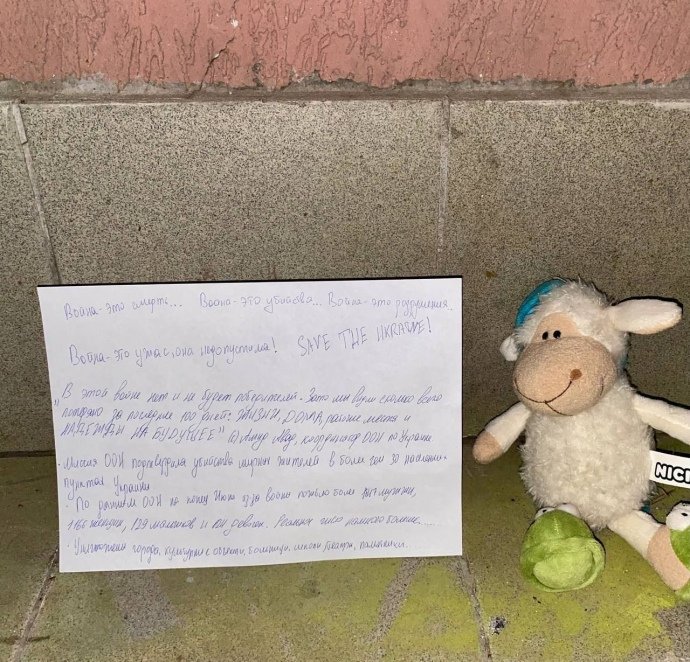 Война-это смерть... Война-это убийства... Война-это разрушения..
Война-это ужас, она недопустима! SAVE THE UKRAINE!
„В этой войне нет и не будет победителей. Зато мы видим сколько всего
потеряно за последние 100 дней: ЖИЗНИ, ДОМА, рабочие места и
НАДЕЖДЫ НА БУДУЩЕЕ" координатор ООН по Украине
• Миссия ООН подтвердила убийства мирных жителей в более чем 30 населенных
пунктах Украины
• По данным ООН на конец Июня за войну погибло более мужчин,
женщин, 129 мальчиков и девочек. Реальных число намного больше.....
• Уничтожены города, культурные объекты, больницы, школы, театры, памятники..
NICI